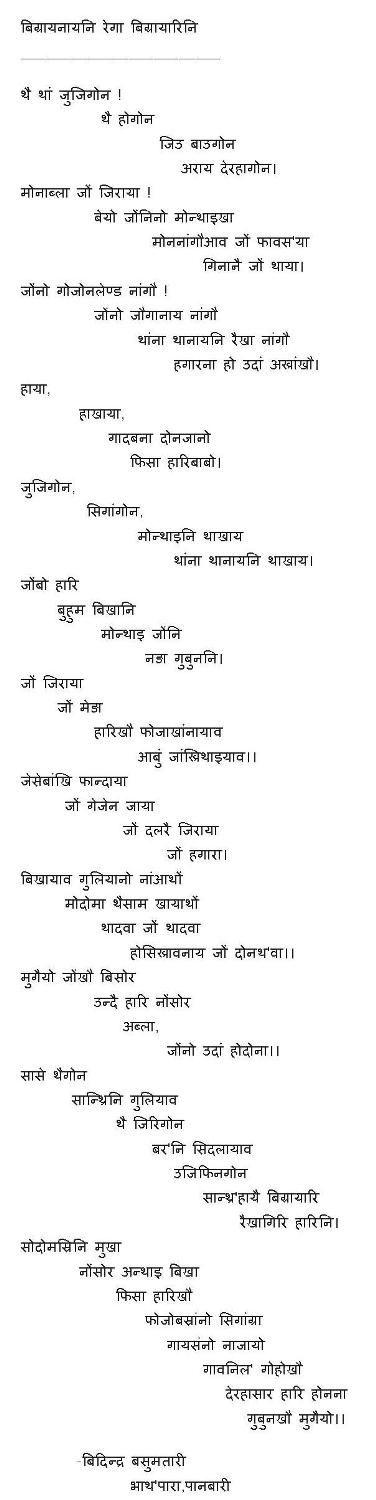 बिग्रायनायनि रेगा बिग्रायारिनि
थै थां जुजिगोन !
थै होगोन
जिउ बाउगोन
अराय देरहागोन।
मोनाब्ला जों जिराया !
बेयो जोंनिनो मोन्थाइखा
मोननांगौआव जों फावस'या
गिनानै जों थाया।
जोंनो गोजोनलेण्ड नांगौ !
जोंनो जौगानाय नांगौ
थांना थानायनि रैखा नांगौ
हगारना हो उदां अखांखौ।
हाया,
हाखाया,
गादबना दोनजानो
फिसा हारिबाबो।
जुजिगोन,
सिगांगोन,
मोन्थाइनि थाखाय
थांना थानायनि थाखाय।
जोंबो हारि
बुहुम बिखानि
मोन्थाइ जोंनि
नङा गुबुननि।
जों जिराया
जों मेङा
हारिखौ फोजाखांनायाव
आबुं जांख्रिथाइयाव।।
जेसेबांखि फान्दाया
जों गेजेन जाया
जों दलरै जिराया
जों हगारा।
बिखायाव गुलियानो नांआथों
मोदोमा थैसाम खायाथों
थादवा जों थादवा
होसिख्रावनाय जों दोनथ'वा।।
मुगैयो जोंखौ बिसोर
उन्दै हारि नोंसोर
अब्ला,
जोंनो उदां होदोना।।
सासे थैगोन
सान्थ्रिनि गुलियाव
थै जिरिगोन
बर'नि सिदलायाव
उजिफिनगोन
सान्थ्र'हायै बिग्रायारि
रैखागिरि हारिनि।
सोदोमस्रिनि मुखा
नोंसोर अन्थाइ बिखा
फिसा हारिखौ
फोजोबस्रांनो सिगांग्रा
गायसंनो नाजायो
गावनिल' गोहोखौ
देरहासार हारि होनना
गुबुनखौ मुगैयो।।
-बिदिन्द्र बसुमतारी
भाथ'पारा,पानबारी